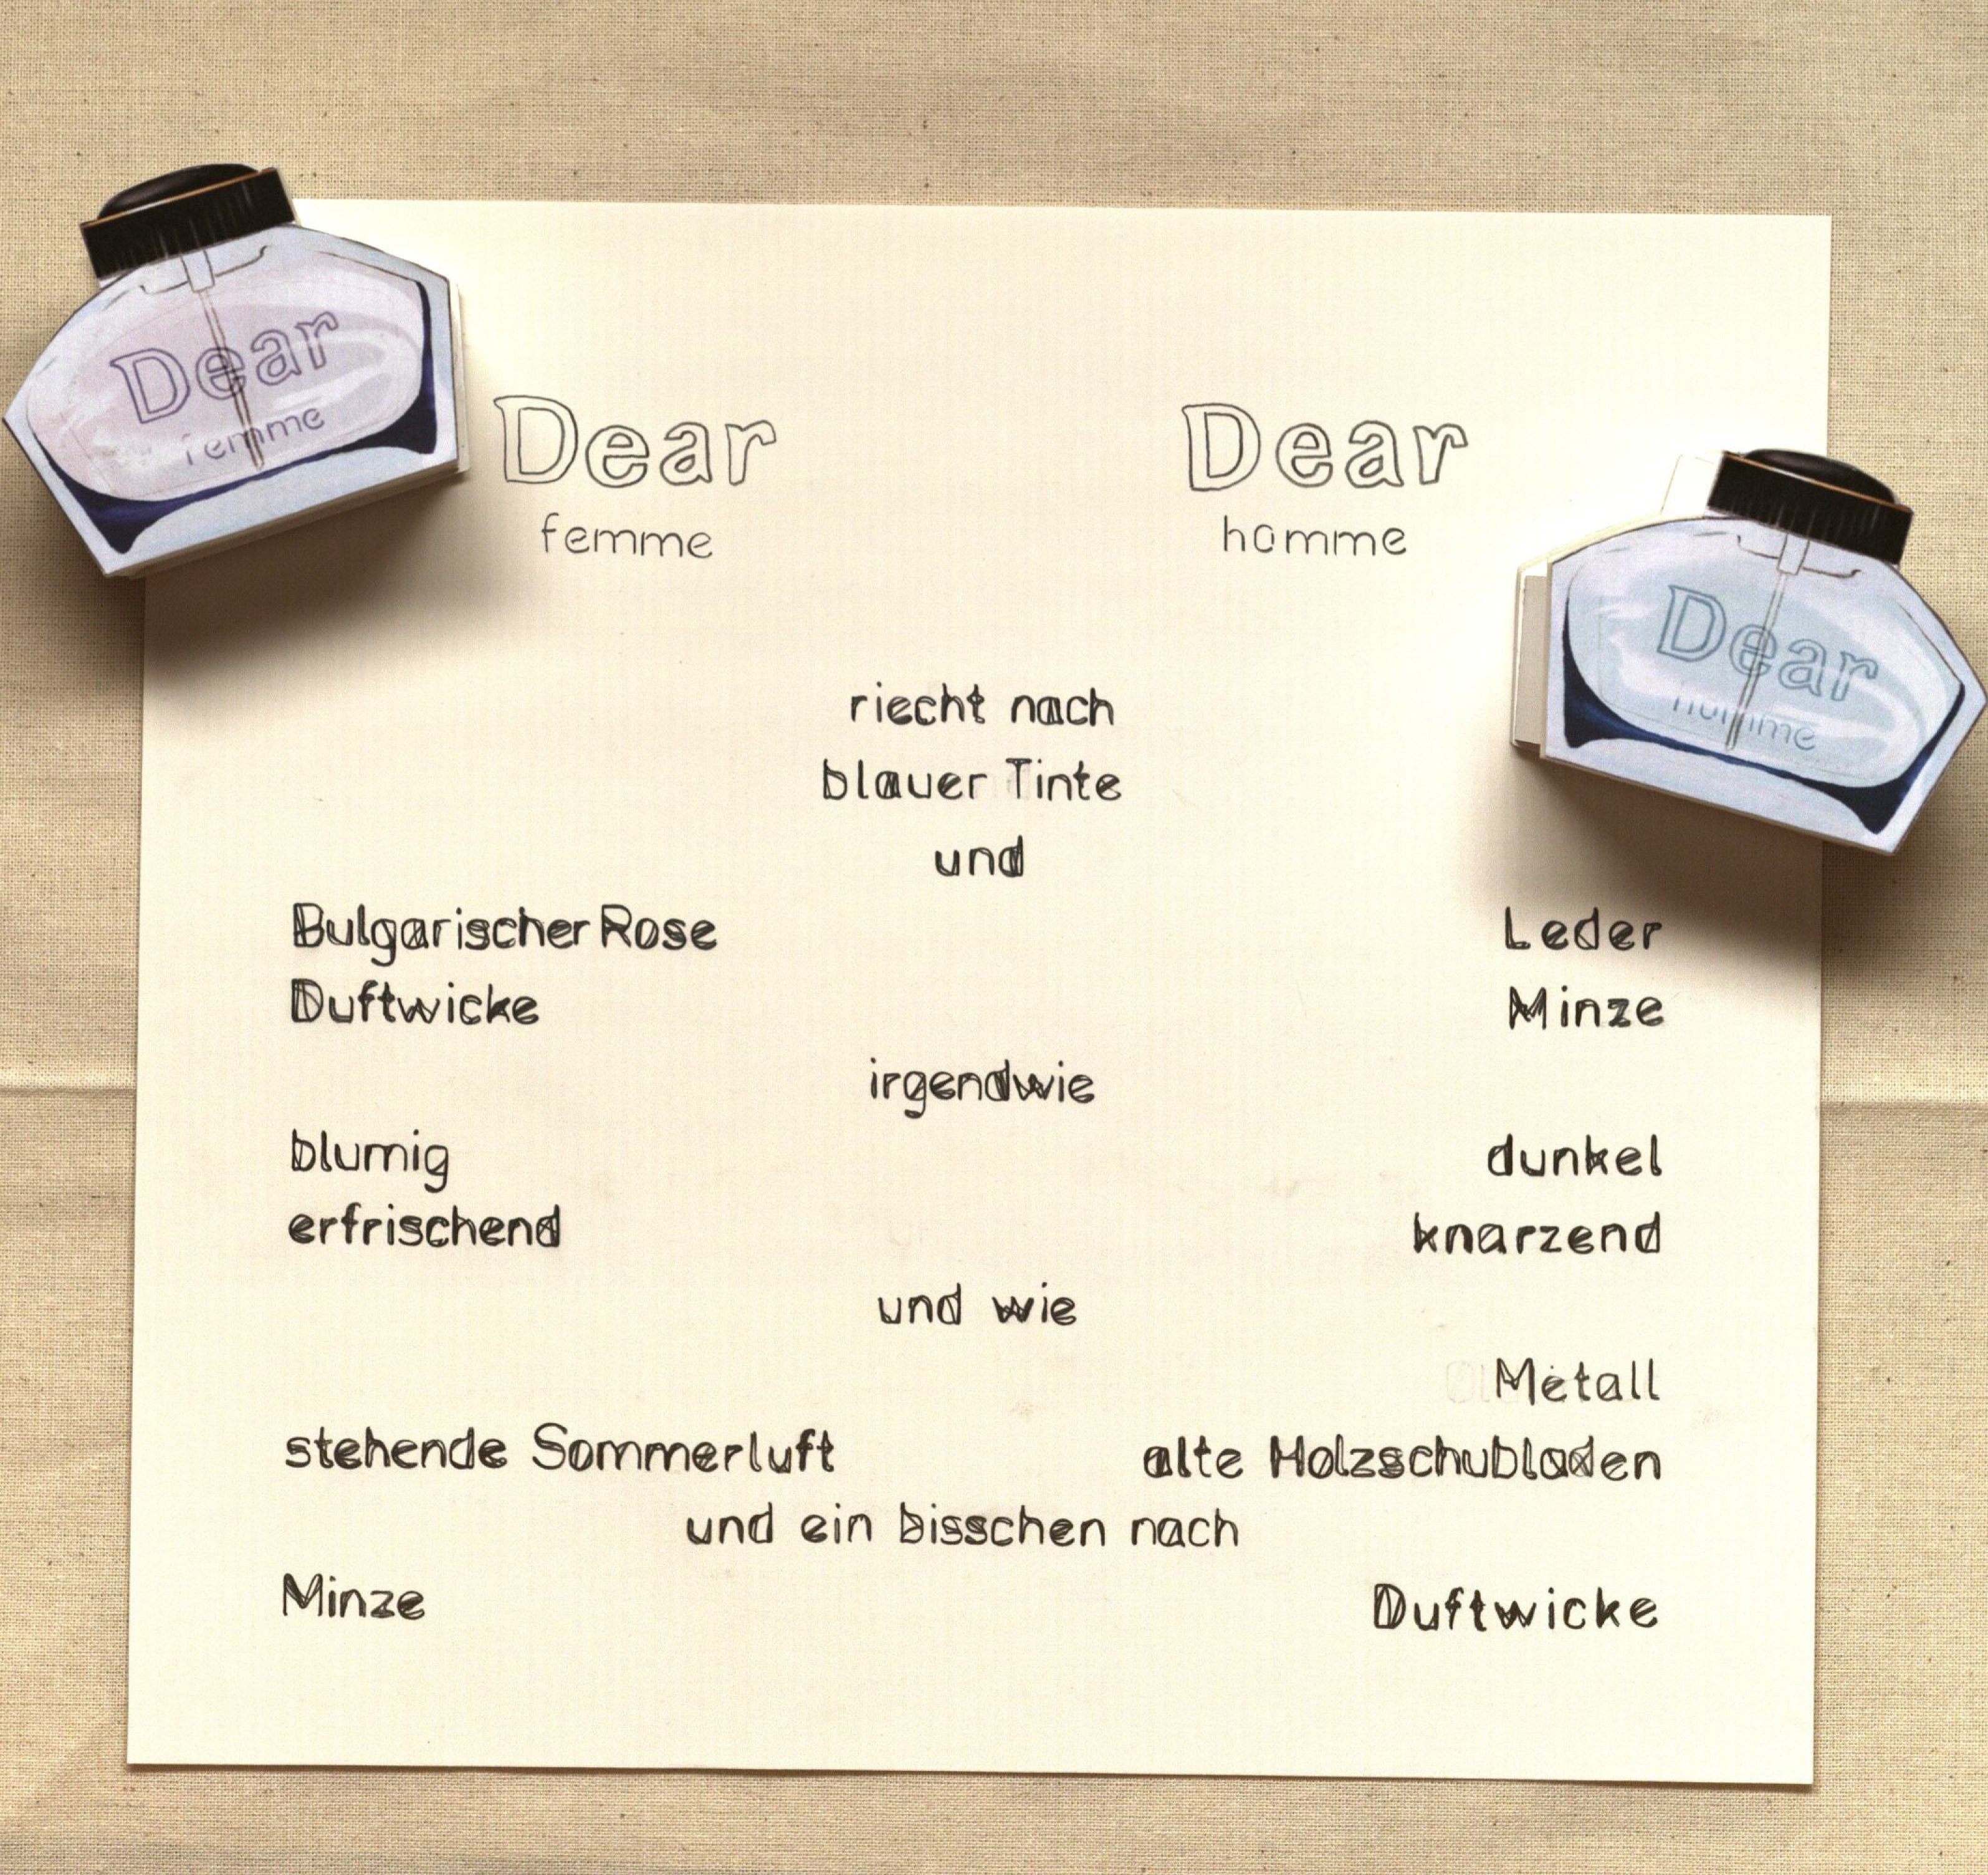 Dear
femme
Dear
femme
Dear
homme
Dear
homme
riecht nach
blauer Tinte
und
Bulgarischer Rose
Leder
Duftwicke
Minze
irgendwie
blumig
dunkel
erfrischend
knarzend
und wie
Metall
stehende Sommerluft
alte Holzschubladen
und ein bisschen nach
Minze
Duftwicke